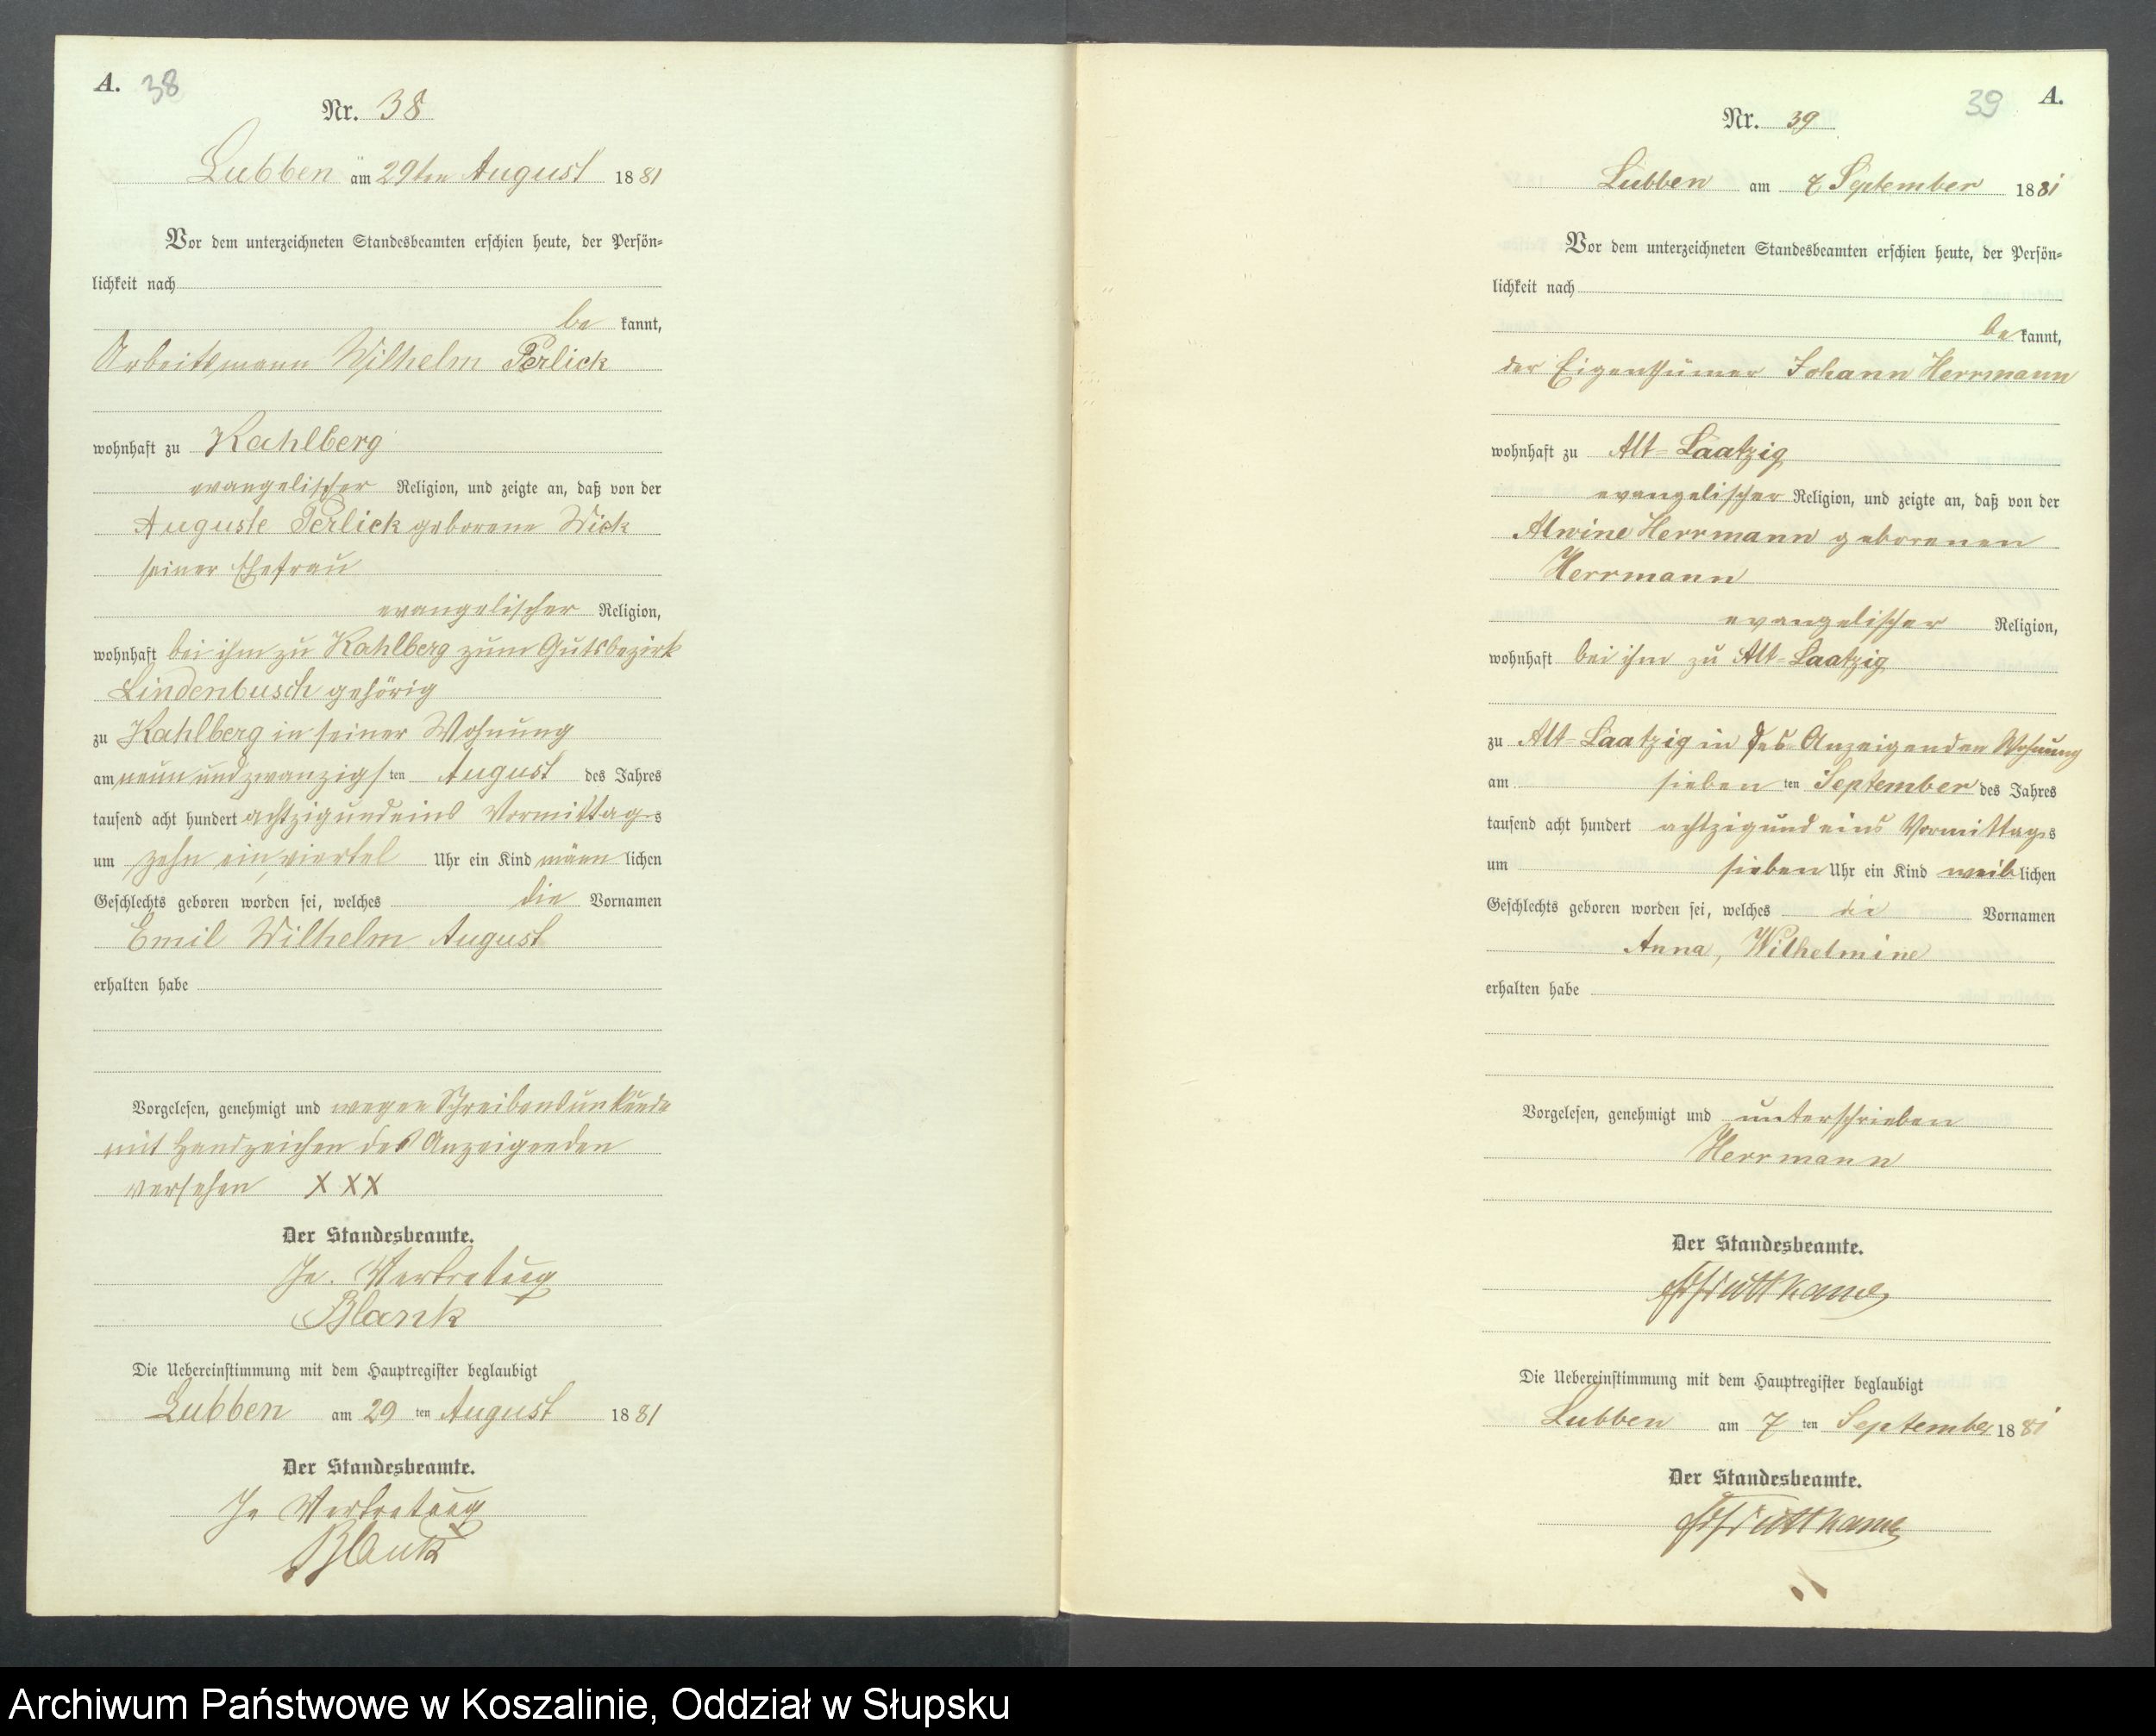 A. 38
Nr. 38
Lubben am 29ten August 1881
Vor dem unterzeichneten Standesbeamten erschien heute, der Persön-
lichkeit nach
be kannt,
Arbeitsmann Wilhelm Perlick
wohnhaft zu Kahlberg
evangelischer Religion, und zeigte an, daß von der
Auguste Perlick geborene Wick
seiner Ehefrau
evangelischer Religion,
wohnhaft bei ihm zu Kahlberg zum Gutsbezirk
Lindenbusch gehörig
zu Kahlberg in seiner Wohnung
am neun und zwanzigsten August des Jahres
tausend acht hundert achtzig und eins Vormittags
um zehn ein viertel Uhr ein Kind männlichen
Geschlechts geboren worden sei, welches die Vornamen
Emil Wilhelm August
erhalten habe
Vorgelesen, genehmigt und wegen Schreibensunkunde
mit Handzeichen des Anzeigenden
versehen XXX
Der Standesbeamte.
In Vertretung
Blank
Die Uebereinstimmung mit dem Hauptregister beglaubigt
Lubben am 29 ten August 1881
Der Standesbeamte.
In Vertretung
Blank
39 A.
Nr. 39
Lubben am 7 September 1881
Vor dem unterzeichneten Standesbeamten erschien heute, der Persön-
lichkeit nach
be kannt,
der Eigenthümer Johann Herrmann
wohnhaft zu Alt-Laatzig
evangelischer Religion, und zeigte an, daß von der
Alwine Herrmann geborenen
Herrmann
evangelischer Religion,
wohnhaft bei ihm zu Alt-Laatzig
zu Alt-Laatzig in des Anzeigenden Wohnung
am siebenten September des Jahres
tausend acht hundert achtzig und eins Vormittags
um sieben Uhr ein Kind weiblichen
Geschlechts geboren worden sei, welches die Vornamen
Anna, Wilhelmine
erhalten habe
Vorgelesen, genehmigt und unterschrieben
Herrmann
Der Standesbeamte.
Die Uebereinstimmung mit dem Hauptregister beglaubigt
Lubben am 7 ten September 1881
Der Standesbeamte.
Archiwum Państwowe w Koszalinie, Oddział w Słupsku